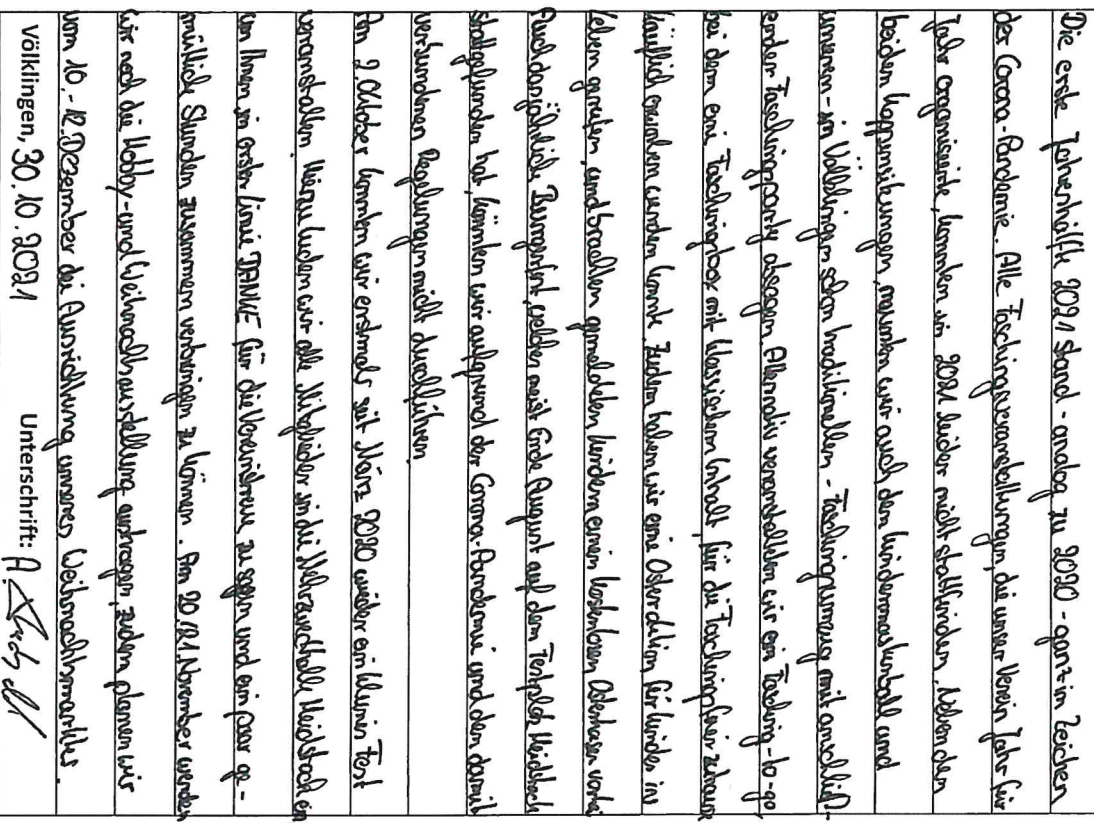 Die erste Jahreshälfte 2021 stand - analog zu 2020 - ganz im Zeichen
der Corona-Pandemie. Alle Faschingsveranstaltungen, die unser Verein Jahr für
Jahr organisierte, konnten in 2021 leider nicht stattfinden. Neben den
beiden Kappensitzungen, mussten wir auch den Kindermaskenball und
unseren - in Völklingen schon traditionellen - Faschingsumzug mit anschließ-
ender Faschingsparty absagen. Alternativ veranstalteten wir ein Fasching-to-go,
bei dem eine Faschingsbox mit klassischem Inhalt für die Faschingsfeier zuhause
käuflich erworben werden konnte. Zudem haben wir eine Osteraktion für Kinder ins
Leben gerufen und brachten gemeldeten Kindern einen kostenlosen Osterhasen vorbei
Auch das jährliche Burgerfest, welches meist Ende August auf dem Festplatz Heidstock
stattgefunden hat, konnten wir aufgrund der Corona-Pandemie und den damit
verbundenen Regelungen nicht durchführen
Am 2. Oktober konnten wir erstmals seit März 2020 wieder ein kleines Fest
veranstalten. Hierzu luden wir alle Mitglieder in die Mehrzweckhalle Heidstock ein
um Ihnen in erster Linie DANKE für die Vereinstreue zu sagen und ein paar ge-
mütliche Stunden zusammen verbringen zu können. Am 20./21. November werden
wir noch die Hobby- und Weihnachtsausstellung austragen, zudem planen wir
vom 10.-12. Dezember die Ausrichtung unseres Weihnachtsmarktes.
Völklingen, 30.10.2021 Unterschrift: